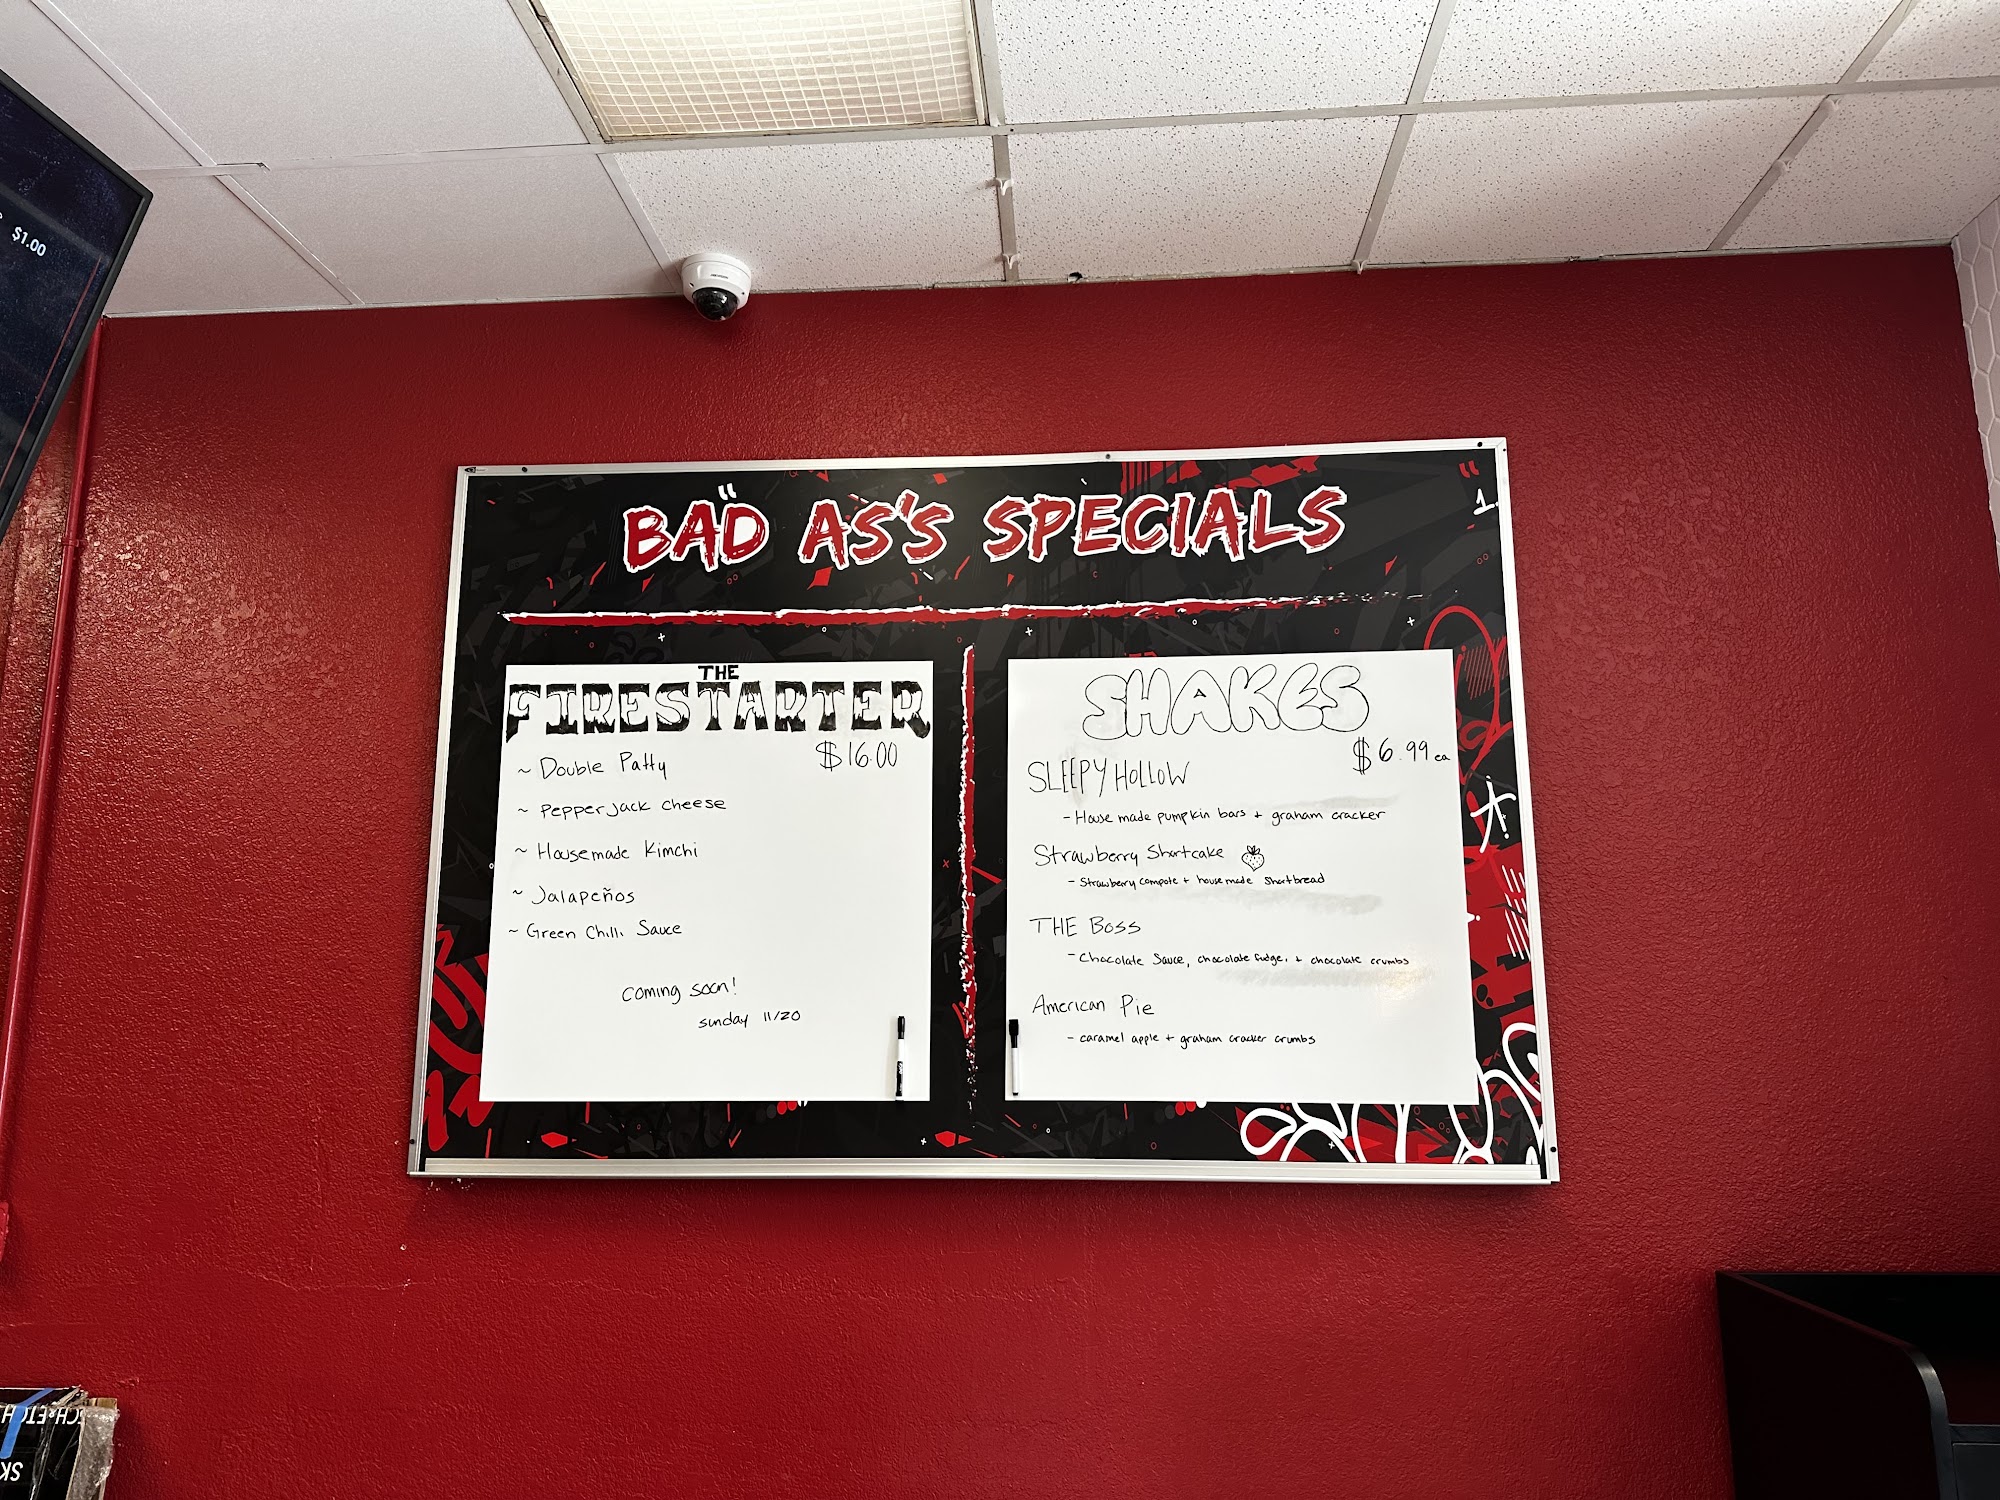 $1.00
BAD AS'S SPECIALS
THE
FIRESTARTER
$16.00
~ Double Patty
~ Pepper jack cheese
~ Housemade Kimchi
~ Jalapeños
~ Green Chili Sauce
coming soon!
sunday 11/20
SHAKES
$6.99 ea
SLEEPY HOLLOW
- House made pumpkin bars + graham cracker
Strawberry Shortcake
- Strawberry compote + house made shortbread
THE BOSS
- Chocolate Sauce, chocolate fudge, + chocolate crumbs
American Pie
- caramel apple + graham cracker crumbs